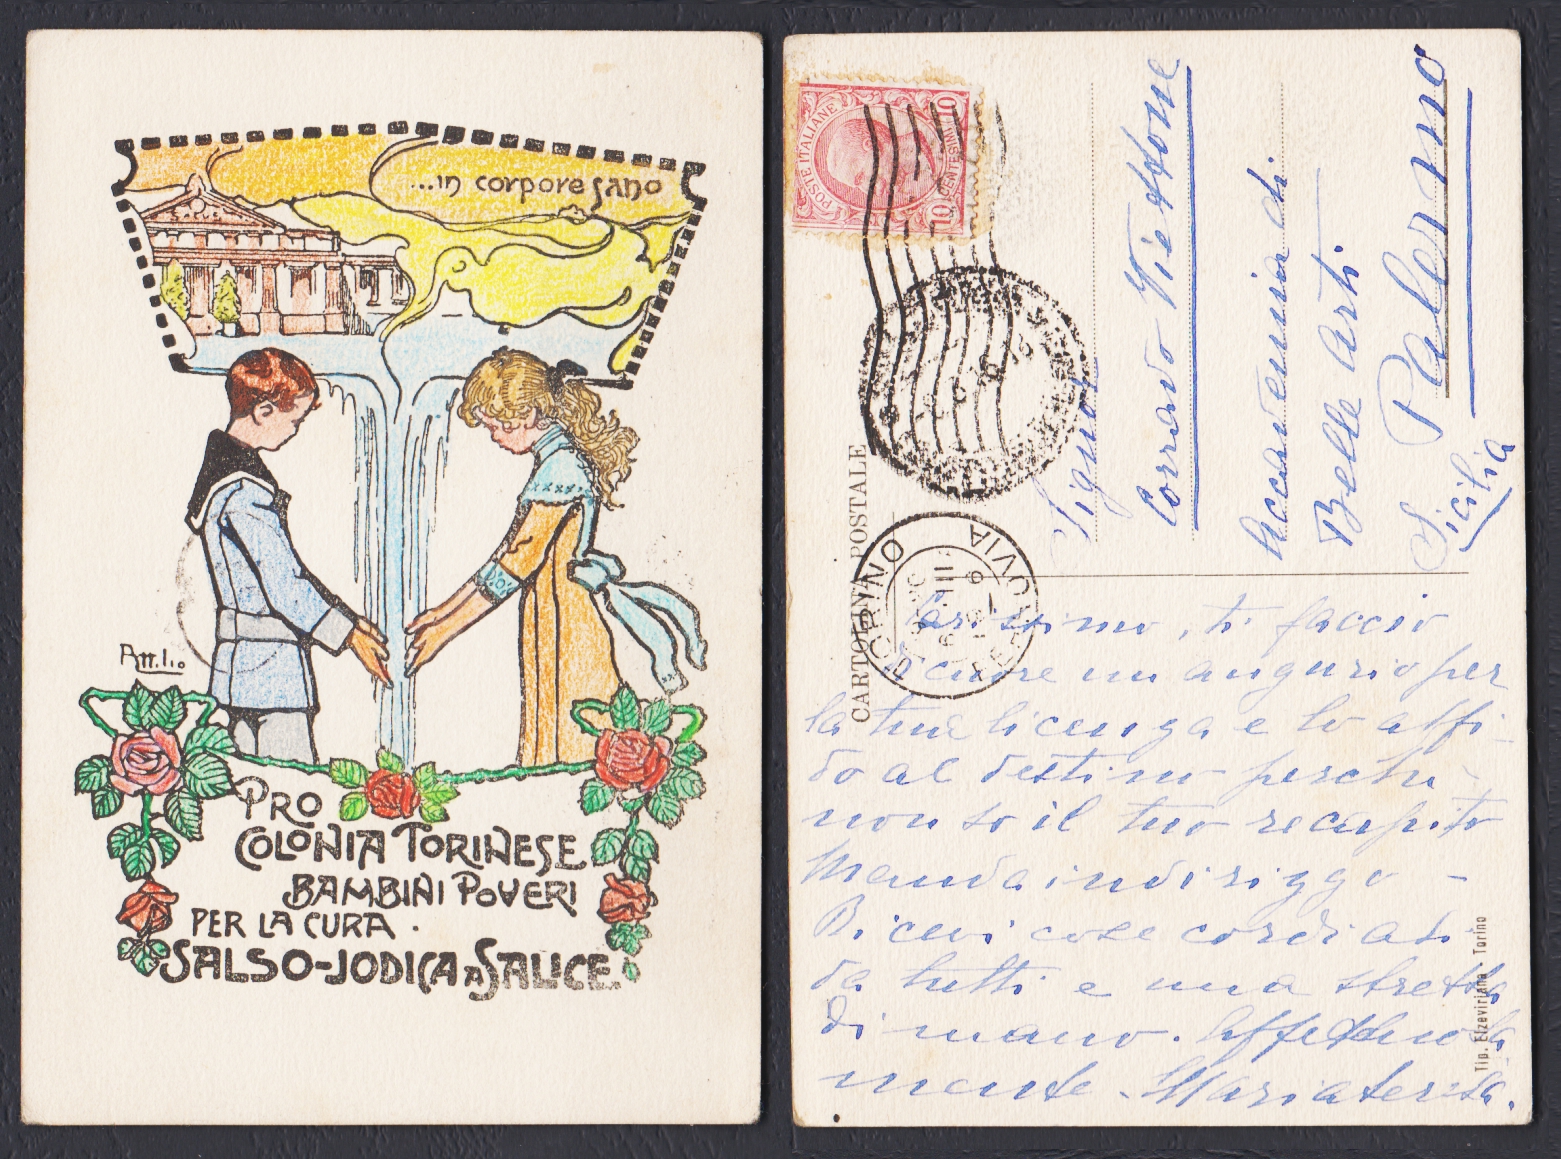 ...in corpore sano
Att.lio
PRO
COLONIA TORINESE
BAMBINI POVERI
PER LA CURA
SALSO-JODICA A SALICE
POSTE ITALIANE
10 CENTESIMI 10
CARTOLINA POSTALE
Signor
Corrado
Accademia di
Belle Arti
Palermo
Sicilia
LOCARNO
FERROVIA
Carissimo, ti faccio
di cuore un augurio per
la tua licenza e lo affi-
do al destino perchè
non so il tuo recapito
Manda indirizzo -
Ricevi cose cordiali
da tutti e una stretta
di mano. Affettuosa
mente. Mariateresa.
Tip. Elzeviriana - Torino